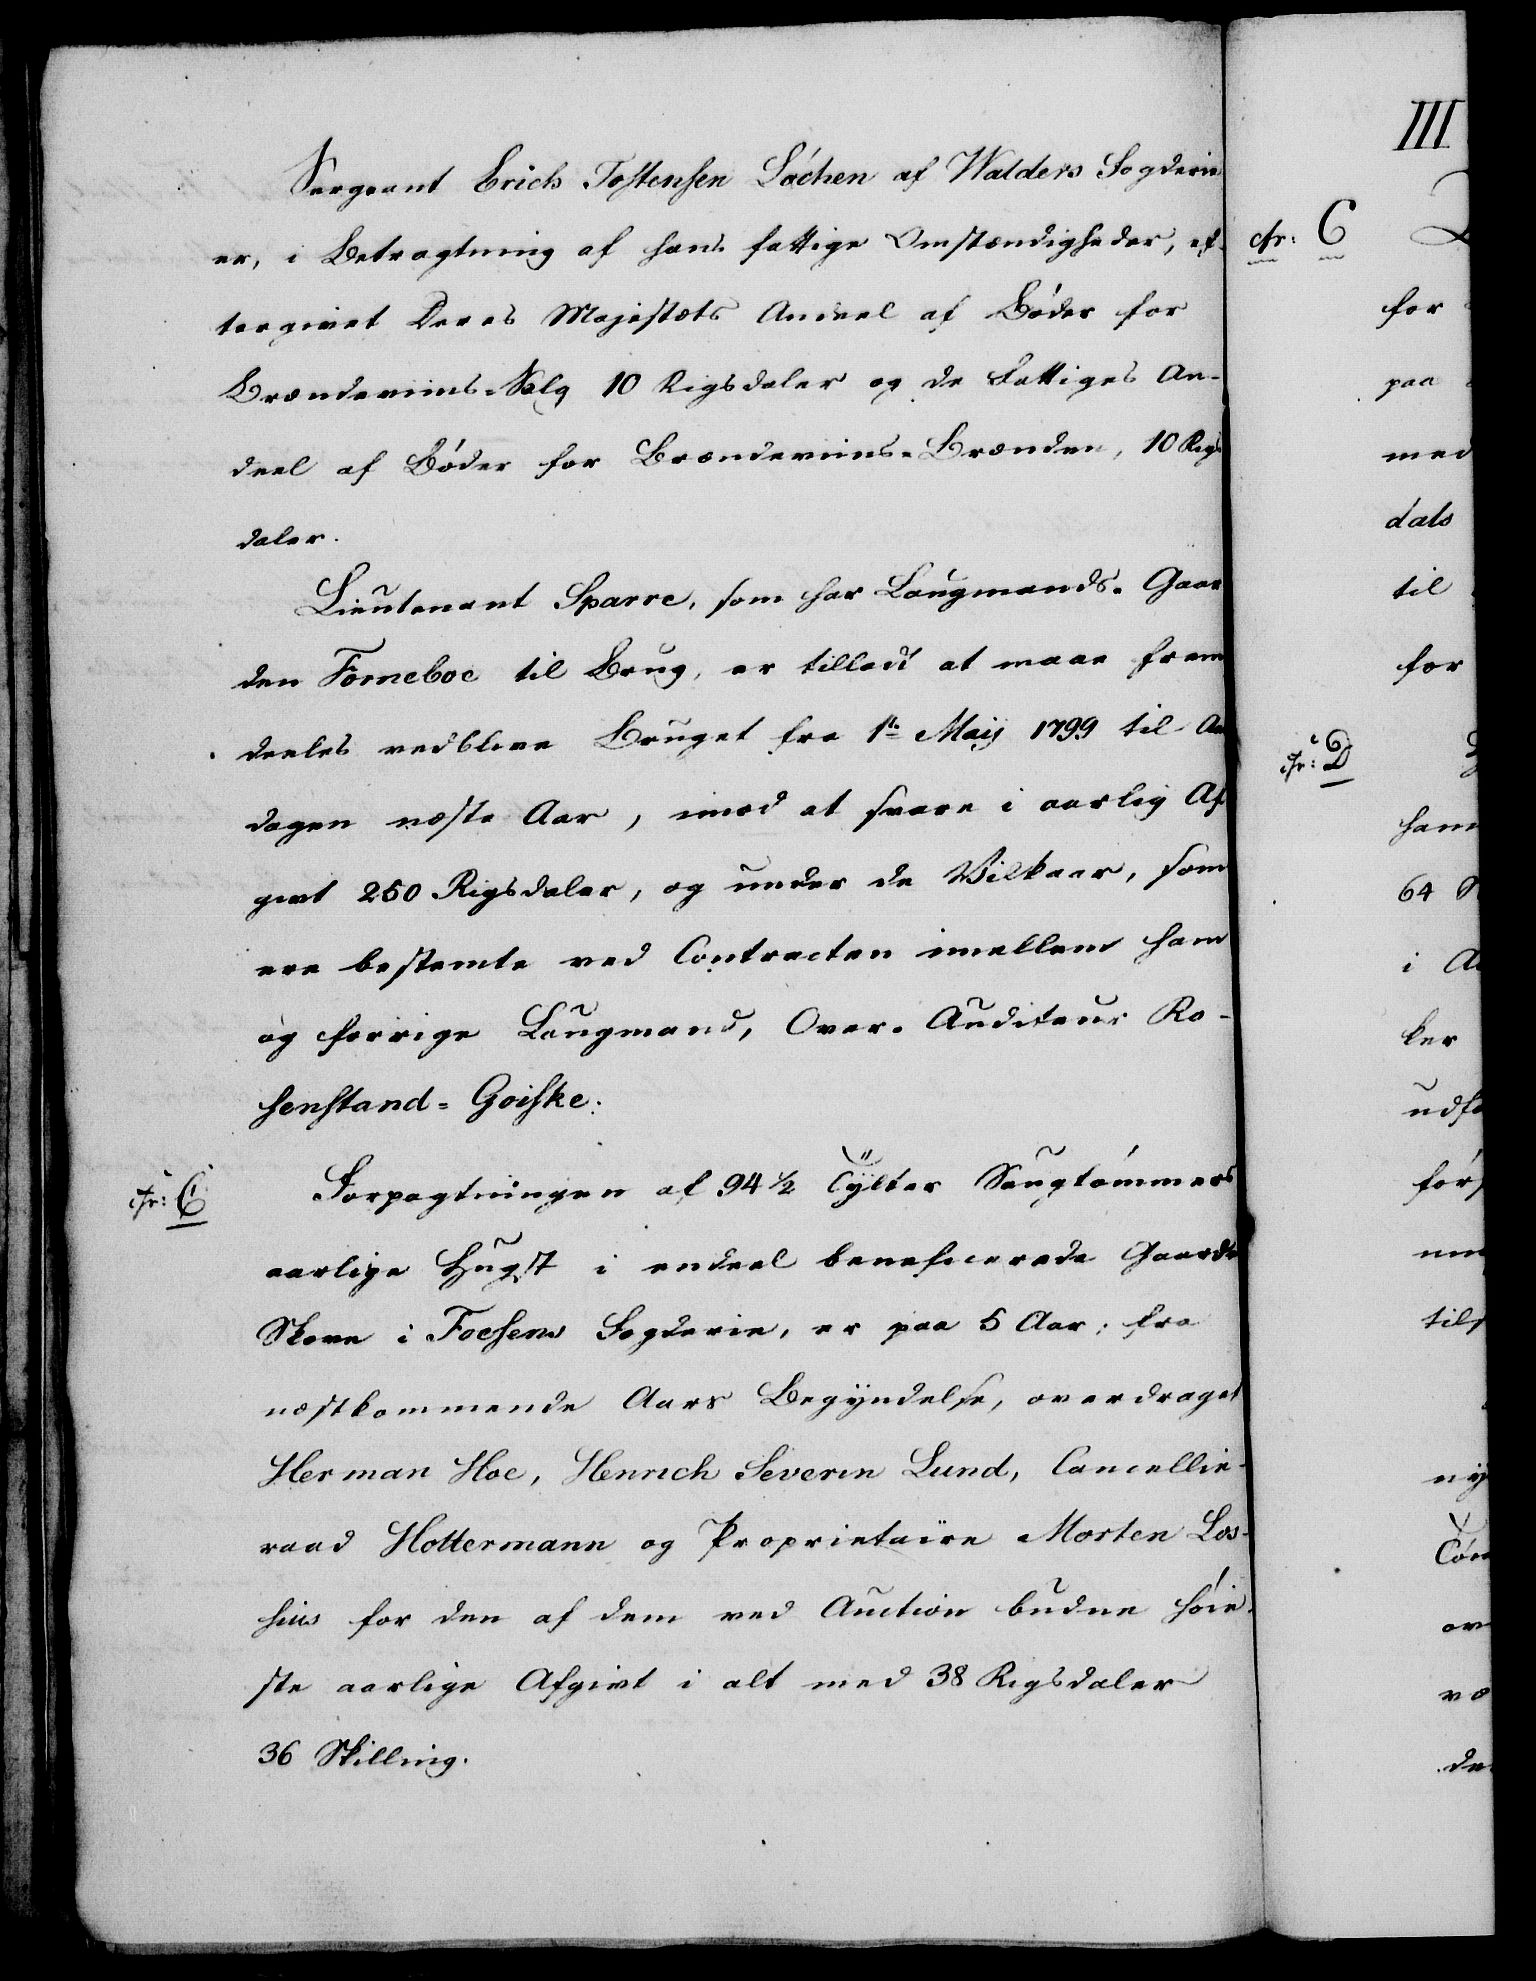 Sergeant Erich Tostensen Løchen af Walders Fogderie
er, i Betragtning af hans fattige Omstændigheder, ef-
tergivet Deres Majestæts Andeel af Bøder for
Brændeviins-Salg 10 Rigsdaler og de Fattiges An-
deel af Bøder for Brændeviins-Brænden, 10 Rigs
daler.
Lieutenant Sparre, som har Laugmands-Gaar
den Forneboe til Brug, er tilladt at maae frem
deeles vedblive Bruget fra 1te Maij 1799 til
dagen næste Aar, imod at svare i aarlig Af
givt 250 Rigsdaler, og under de Vilkaar, som
ere bestemte ved Contracten imellem ham
og forrige Laugmand, Over-Auditeur Ro-
senstand-Goiske.
cfr: C
Forpagtningen af 94 1/2 Tylter Saugtømmers
aarlige Hugst i endeel beneficerede Gaarde
Skove i Foesens Fogderie, er paa 5 Aar, fra
næstkommende Aars Begyndelse, overdraget
Herman Hoe, Henrich Severin Lund, Cancellie-
raad Hottermann og Proprietaire Morten Los-
sius for den af dem ved Auction budne høie-
ste aarlige Afgivt i alt med 38 Rigsdaler
36 Skilling.
III
cfr: C
for
paa
med
dals
til
for
cfr: D
ham
64
i
ker